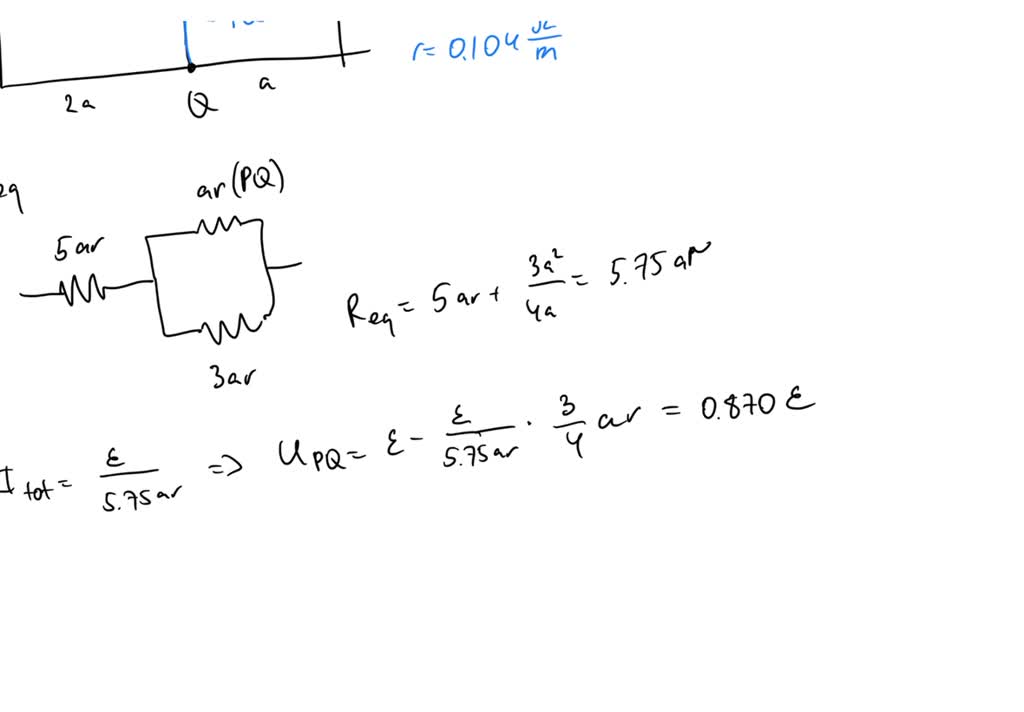 r= 0.104 Ω/m
2a
Q
a
eq
ar (PQ)
5ar
3ar
Req = 5ar + 3a²/4a = 5.75 ar
I tot = ε/5.75ar => U PQ = ε - ε/5.75ar · 3/4 ar = 0.870 ε